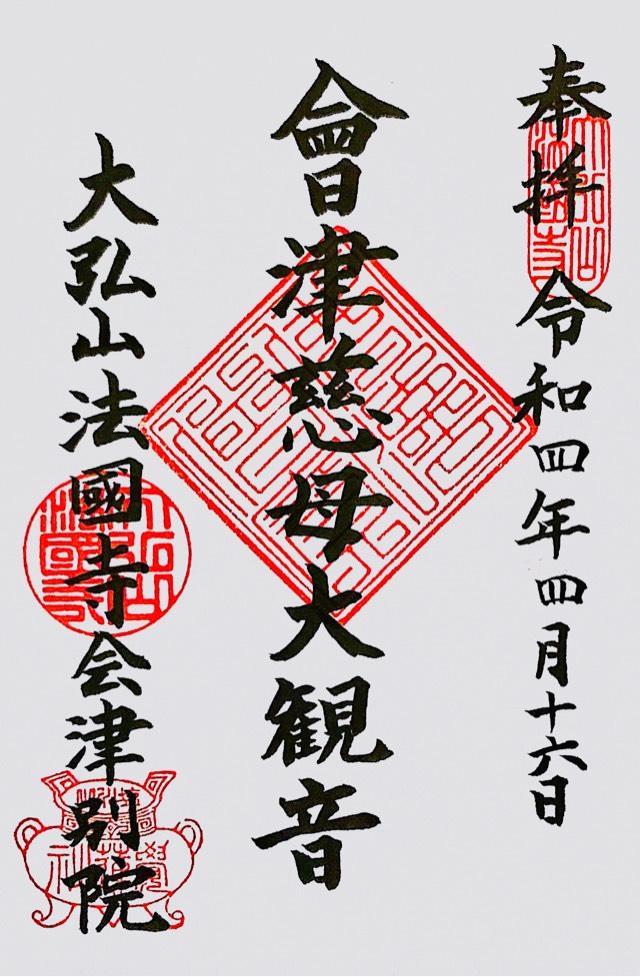 奉拝 令和四年四月十六日
會津慈母大観音
大弘山法國寺会津別院